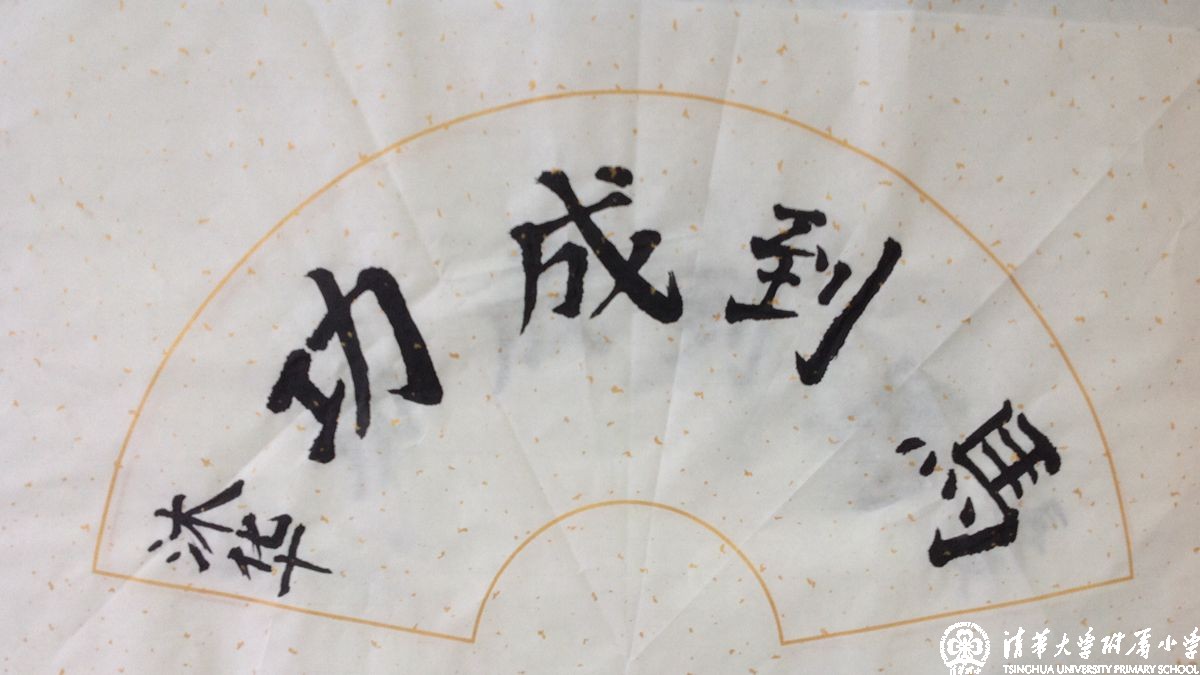 馬到成功
沐华
清華大学附属小学
TSINGHUA UNIVERSITY PRIMARY SCHOOL